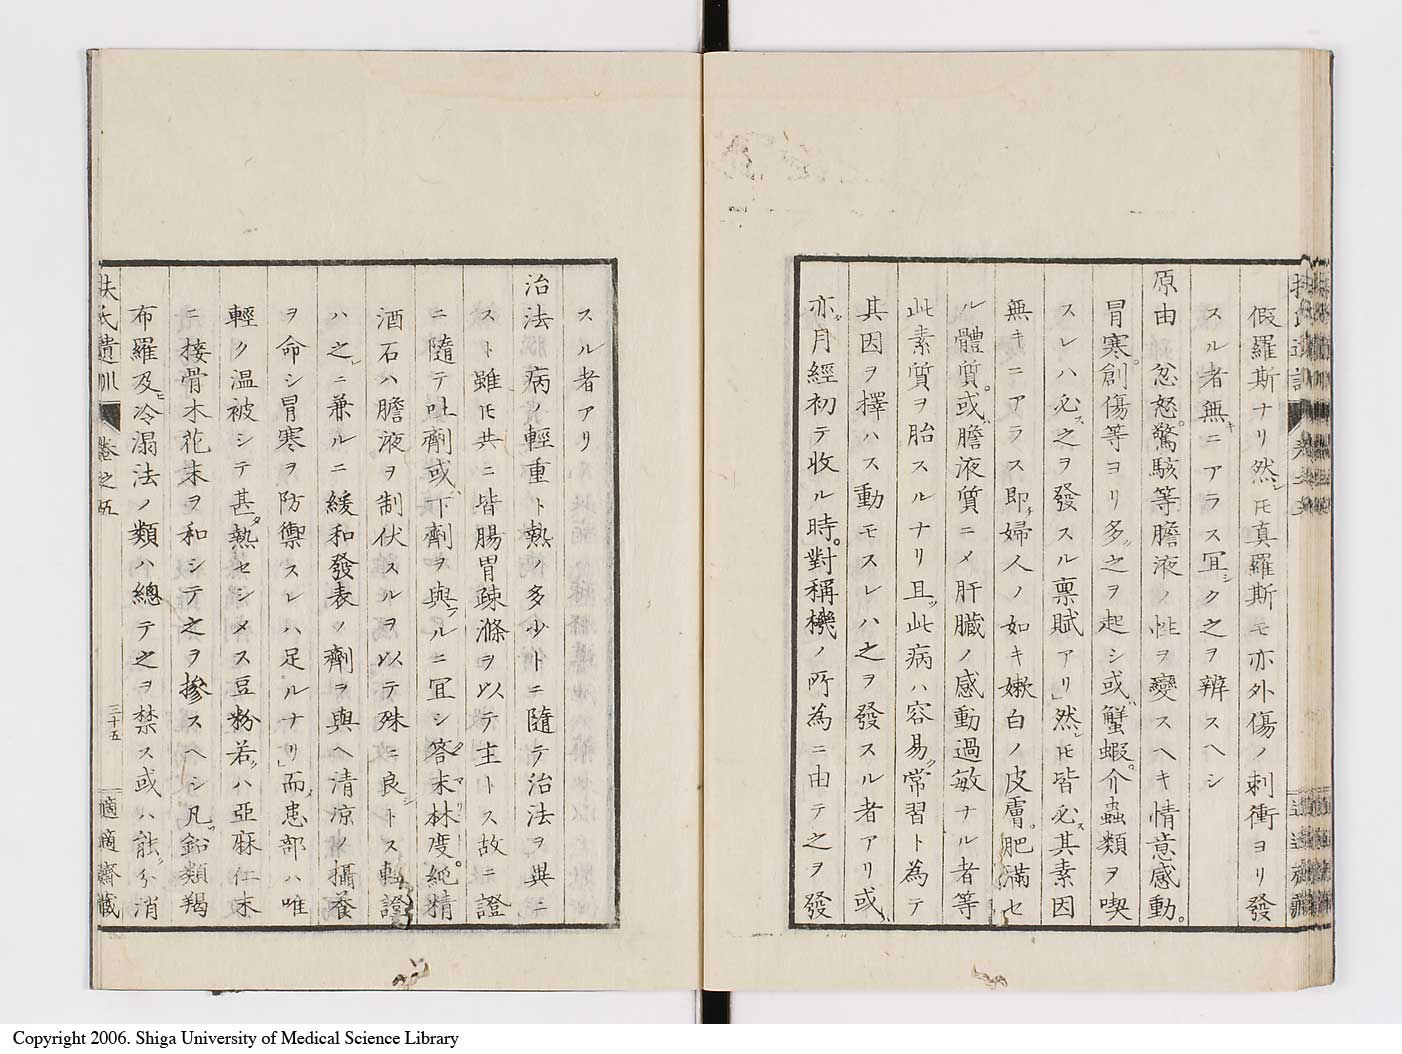 假羅斯ナリ然レ𪜈真羅斯モ亦外傷ノ刺衝ヨリ發
スル者無キニアラス冝シク之ヲ辨スヘシ
原由 忽怒。驚駭等膽液ノ性ヲ變スヘキ情意感動。
冒寒。創傷等ヨリ多ク之ヲ起シ或ハ蟹蝦。介蟲類ヲ喫
スレハ必ス之ヲ發スル禀賦アリ」然レ𪜈皆必ス其素因
無キニアラス即チ婦人ノ如キ嫩白ノ皮膚。肥満セ
ル體質。或ハ膽液質ニ〆肝臓ノ感動過敏ナル者等
此素質ヲ胎スルナリ且ツ此病ハ容易ク常習ト為テ
其因ヲ擇ハス動モスレハ之ヲ發スル者アリ或ハ
亦タ月經初テ收ル時。對稱機ノ所為ニ由テ之ヲ發
スル者アリ
治法 病ノ輕重ト熱ノ多少トニ隨テ治法ヲ異ニ
スト雖𪜈共ニ皆腸胃疎滌ヲ以テ主トス故ニ證
ニ隨テ吐劑或ハ下劑ヲ與フルニ冝シ答末林度。純精
酒石ハ膽液ヲ制伏スルヲ以テ殊ニ良シトス輕證
ハ之レニ兼ルニ緩和發表ノ劑ヲ與ヘ清凉ノ攝養
ヲ命シ冒寒ヲ防禦スレハ足ルナリ」而メ患部ハ唯
輕ク温被シテ甚タ熱セシメス豆粉若クハ亞麻仁末
ニ接骨木花末ヲ和シテ之ヲ摻スヘシ凡ソ鉛類羯
布羅及ヒ冷溻法ノ類ハ總テ之ヲ禁ス或ハ能ク分消
扶氏遺訓 卷之五 三十五 適適齋藏